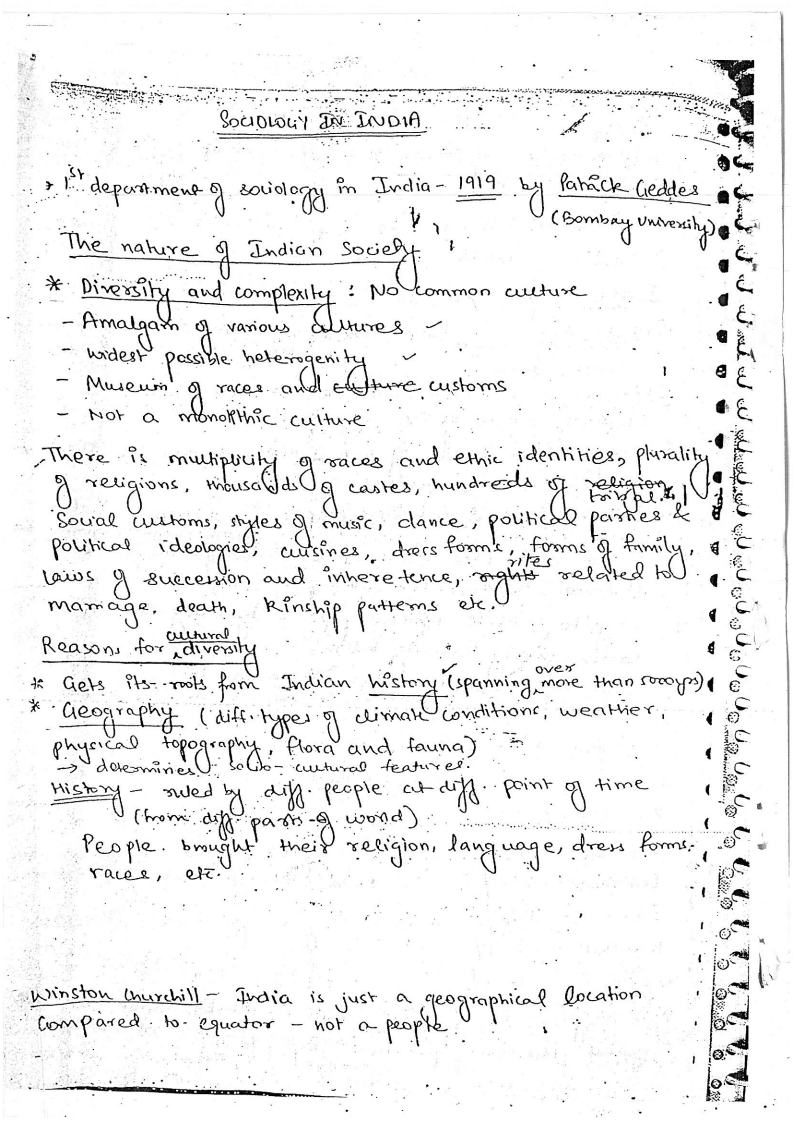 SOCIOLOGY IN INDIA
* 1st department of sociology in India - 1919 by Patrick Geddes
(Bombay University)
The nature of Indian Society
* Diversity and complexity : No common culture
- Amalgam of various cultures ✓
- widest possible heterogenity ✓
- Museum of races and culture customs
- Not a monolithic culture
There is multiplicity of races and ethic identities, plurality
of religions, thousands of castes, hundreds of religion
tribal
social customs, styles of music, dance, political parties &
political ideologies, cuisines, dress forms, forms of family,
laws of succession and inheretence, rights rites related to
marriage, death, kinship patterns etc.
Reasons for cultural diversity
* Gets its roots from Indian history ✓ (spanning over more than 5000yrs)
* Geography (diff. types of climate conditions, weather,
physical topography, flora and fauna)
→ determines socio-cultural features.
History - ruled by diff. people at diff. point of time
(from diff. parts of world)
People brought their religion, language, dress forms,
races, etc.
Winston Churchill - India is just a geographical location
compared to equator - not a people